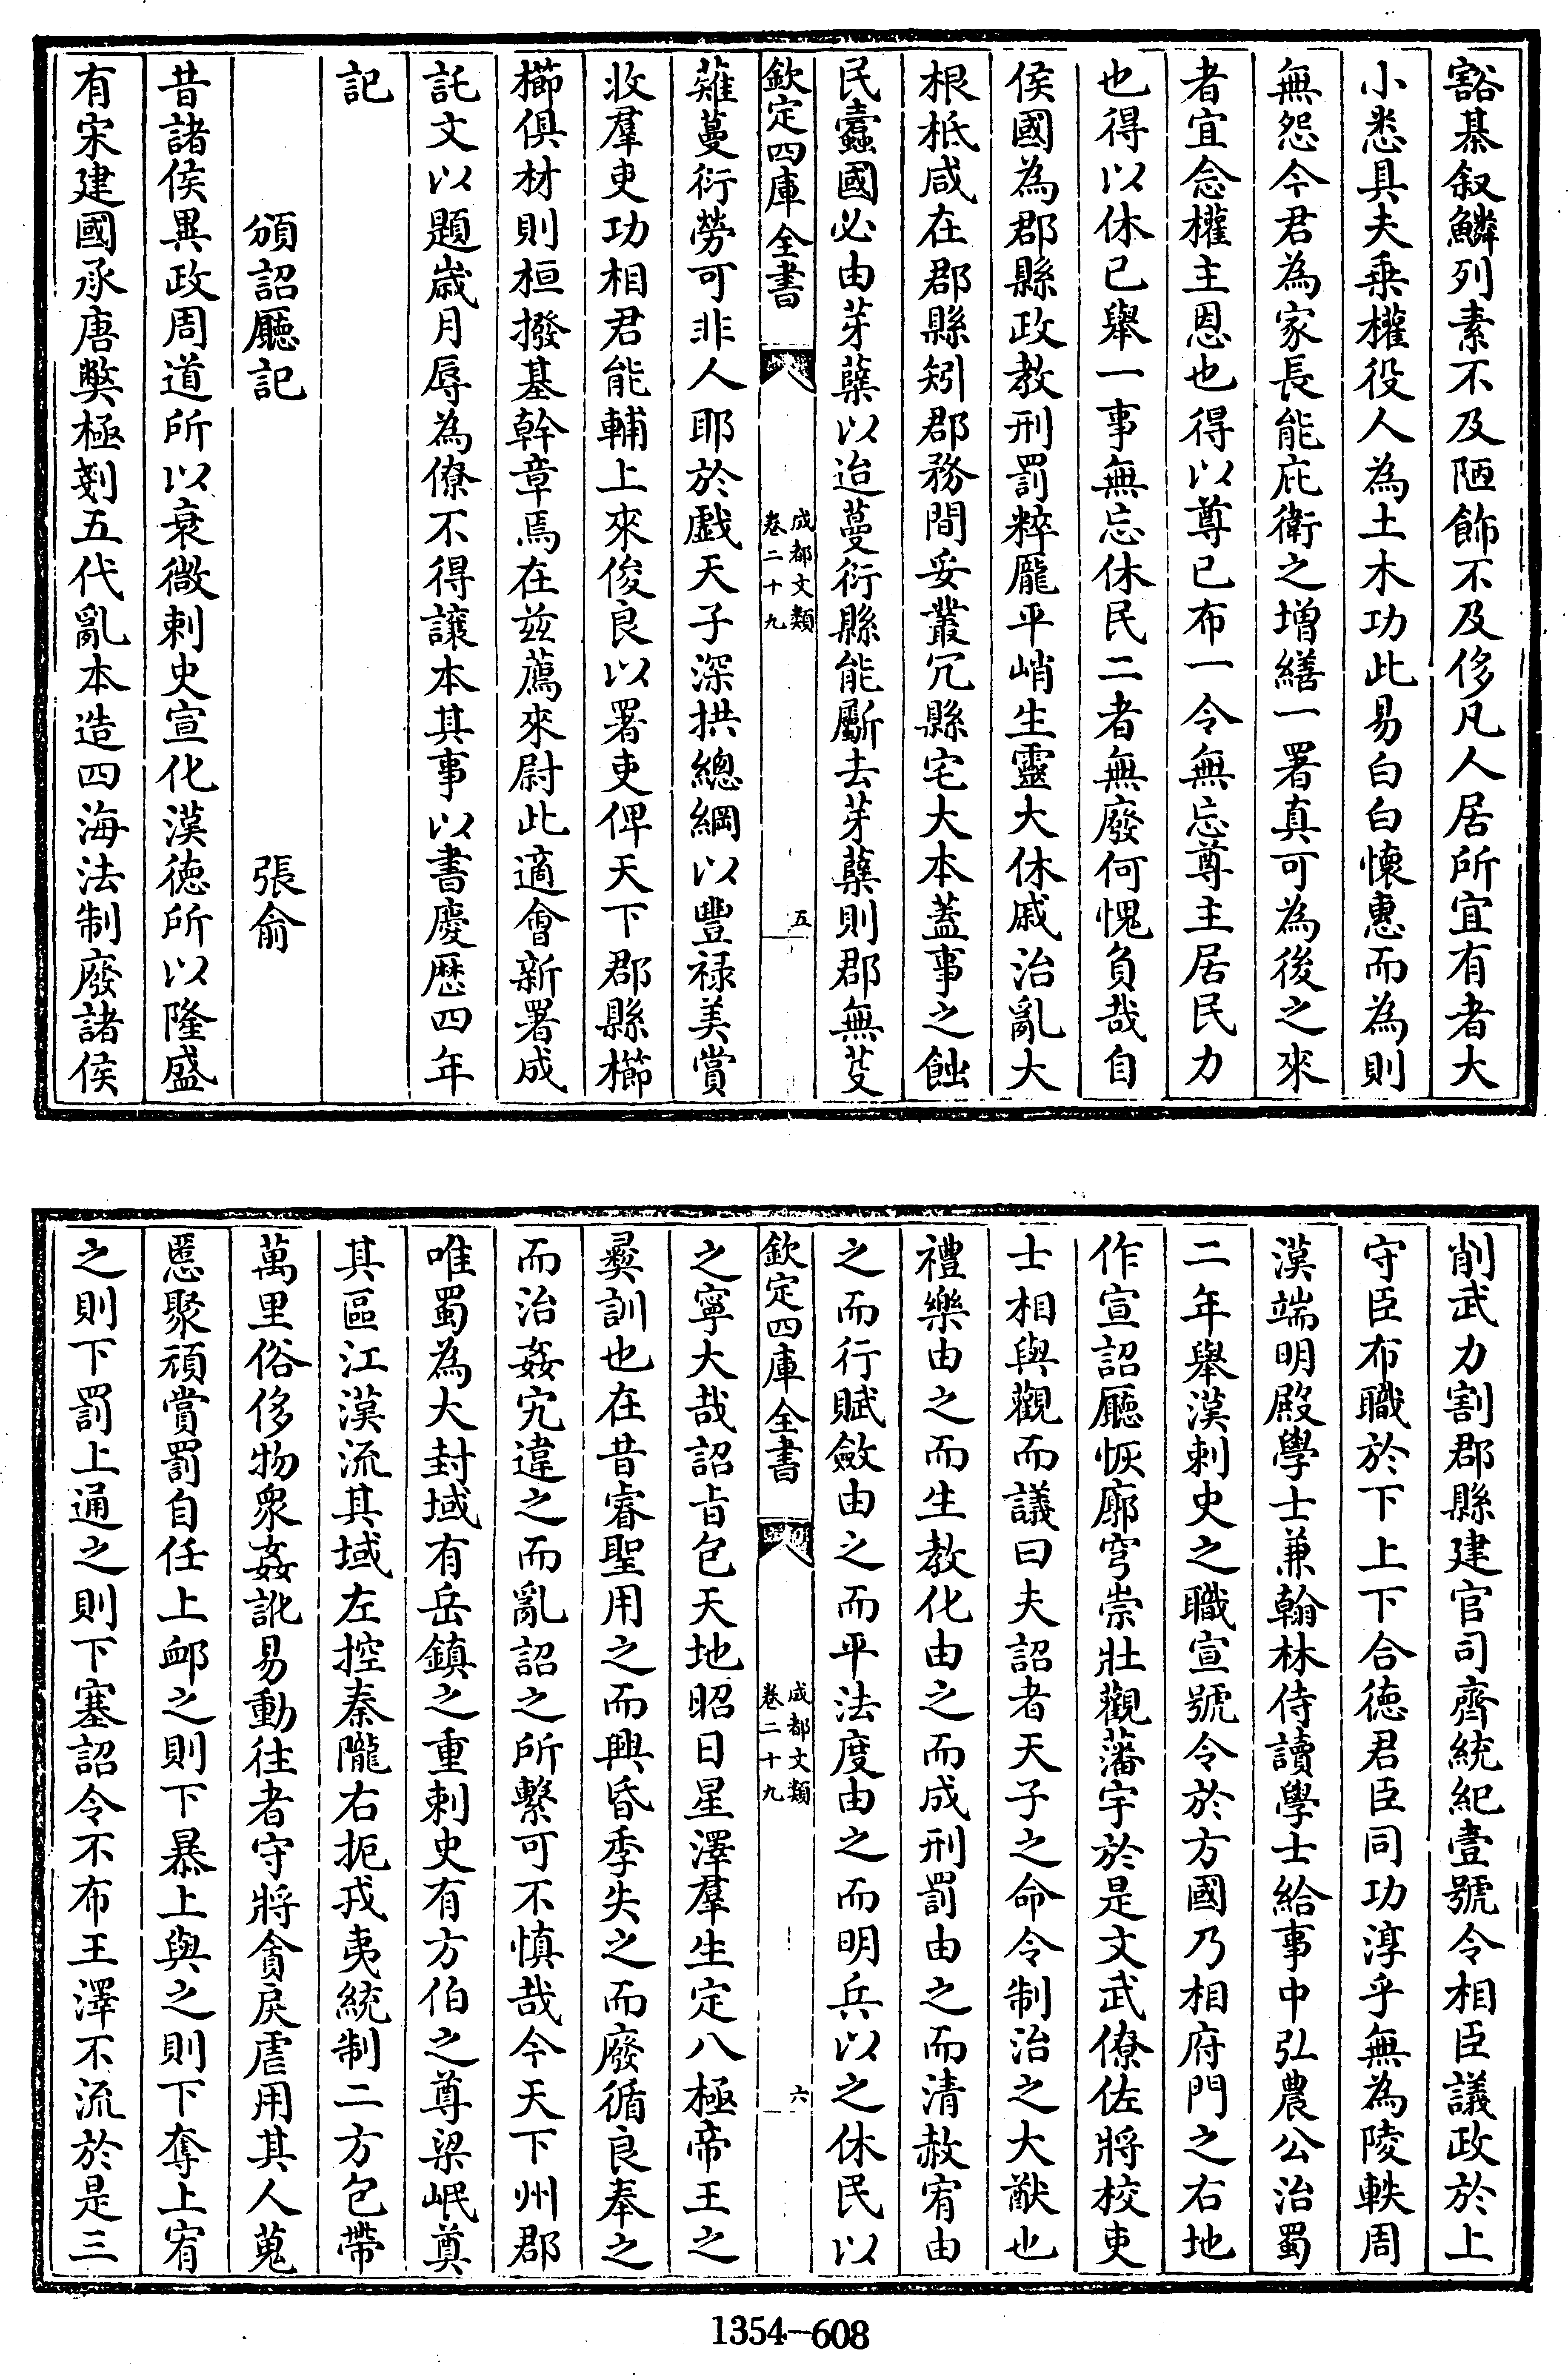 豁綦叙鱗列素不及陋飾不及侈凡人居所宜有者大
小悉具夫乗權役人為土木功此易白白懷惠而為則
無怨今君為家長能庇衛之增繕一署真可為後之來
者宜念權主恩也得以尊已布一令無忘尊主居民力
也得以休已舉一事無忘休民二者無廢何愧負哉自
侯國為郡縣政教刑罰粹龎平峭生靈大休戚治亂大
根柢咸在郡縣矧郡務間妥叢冗縣宅大本蓋事之蝕
民蠧國必由芽蘖以迨蔓衍縣能斸去芽蘖則郡無芟
欽定四庫全書
成都文類
卷二十九
五
薙蔓衍勞可非人耶於戲天子深拱總綱以豐禄美賞
收羣吏功相君能輔上來俊良以署吏俾天下郡縣櫛
櫛俱材則桓撥基幹章焉在兹薦來尉此適會新署成
託文以題嵗月辱為僚不得讓本其事以書慶厯四年
記
頒詔廳記
張俞
昔諸侯異政周道所以衰微刺史宣化漢徳所以隆盛
有宋建國承唐弊極剗五代亂本造四海法制廢諸侯
削武力割郡縣建官司齊統紀壹號令相臣議政於上
守臣布職於下上下合徳君臣同功淳乎無為陵軼周
漢端明殿學士兼翰林侍讀學士給事中弘農公治蜀
二年舉漢刺史之職宣號令於方國乃相府門之右地
作宣詔廳恢廓穹崇壯觀藩宇於是文武僚佐將校吏
士相與觀而議曰夫詔者天子之命令制治之大猷也
禮樂由之而生教化由之而成刑罰由之而清赦宥由
之而行賦斂由之而平法度由之而明兵以之休民以
欽定四庫全書
成都文類
卷二十九
六
之寧大哉詔㫖包天地昭日星澤羣生定八極帝王之
彛訓也在昔睿聖用之而興昏季失之而廢循良奉之
而治姦宄違之而亂詔之所繫可不慎哉今天下州郡
唯蜀為大封域有岳鎮之重刺史有方伯之尊梁岷奠
其區江漢流其域左控秦隴右扼戎夷統制二方包帶
萬里俗侈物衆姦訛易動往者守將貪戾虐用其人蒐
慝聚頑賞罰自任上䘏之則下暴上與之則下奪上宥
之則下罰上通之則下塞詔令不布王澤不流於是三
1354-608